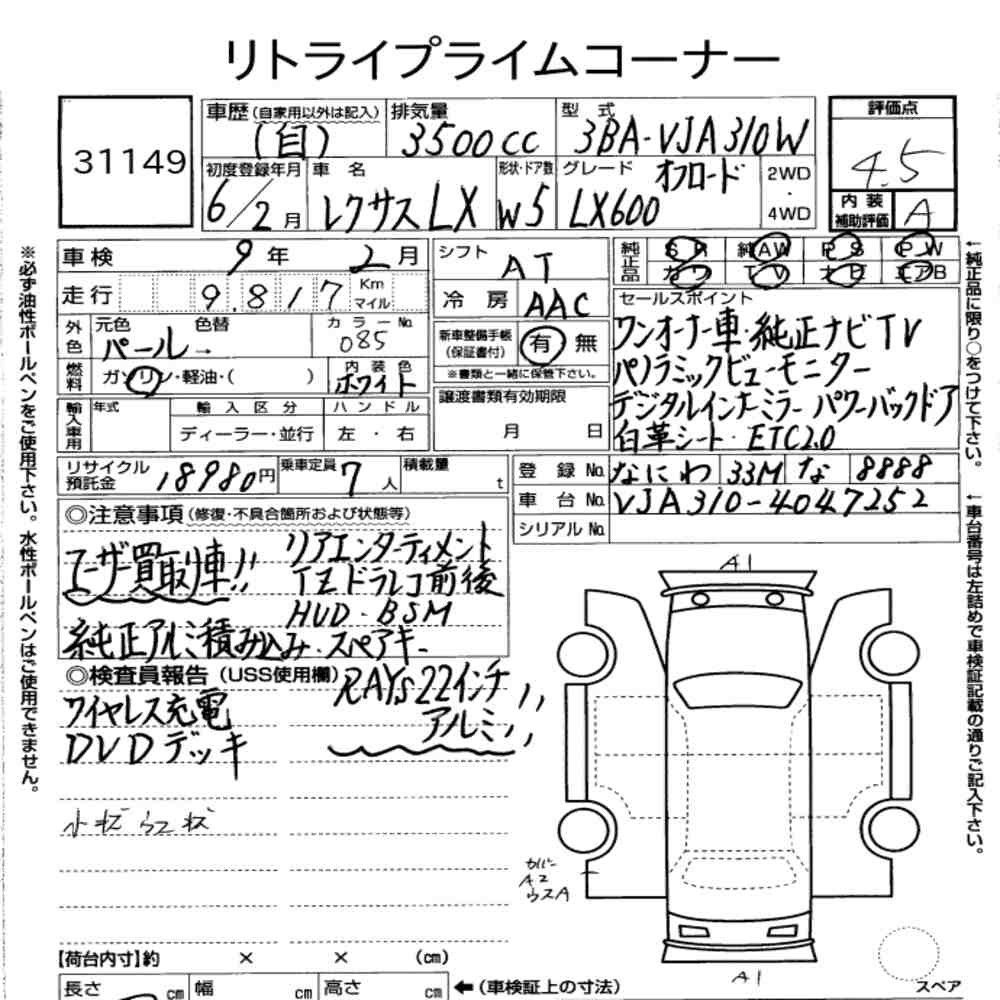 リトライプライムコーナー
31149
車歴 (自家用以外は記入) 排気量 型式 評価点
(自) 3500cc 3BA-VJA310W 4.5
初度登録年月 車名 形状・ドア数 グレード オフロード 2WD・4WD 内装補助評価 A
6/2月 レクサスLX W5 LX600
車検 9年 2月
走行 9.817 Km マイル
外色 元色 色替 カラーNo.
パール→ 085
燃料 ガソリン・軽油・( ) 内装色 ホワイト
輸入車用 年式 輸入区分 ハンドル
ディーラー・並行 左・右
リサイクル預託金 18980円 乗車定員 7人 積載量 t
シフト AT
冷房 AAC
新車整備手帳(保証書付) 有 無
※書類と一緒に保管下さい。
譲渡書類有効期限
月 日
純正品 SR 純AW PS PW
カワ TV ナビ エアB
セールスポイント
ワンオーナー車・純正ナビTV
パノラミックビューモニター
デジタルインナーミラー パワーバックドア
白革シート・ETC2.0
登録No. なにわ 33M な 8888
車台No. VJA310-4047252
シリアルNo.
◎注意事項(修復・不具合箇所および状態等)
ユーザー買取車!! リアエンターティメント
TZドラレコ前後
HUD・BSM
純正アルミ積み込み・スペアキー
◎検査員報告(USS使用欄) RAYs22インチ
アルミ!!
ワイヤレス充電
DVDデッキ
A1
カバー
A2
ウスA
A1
【荷台内寸】約 × × (cm)
長さ cm 幅 cm 高さ cm ←(車検証上の寸法)
スペア
※必ず油性ボールペンをご使用下さい。水性ボールペンはご使用できません。
←純正品に限り○をつけて下さい。
←車台番号は左詰めで車検証記載の通りご記入下さい。